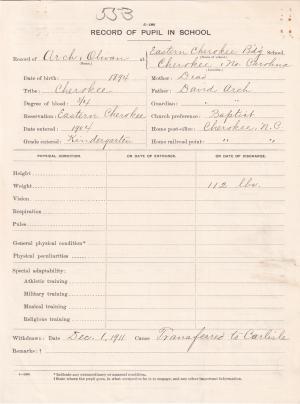 553
5-196
RECORD OF PUPIL IN SCHOOL
Record of Arch, at Eastern Cherokee Bdg School.
(Name.) (Name of school.)
Cherokee, No. Carolina
Date of birth: 1894 Mother: Dead
Tribe: Cherokee Father: David Arch
Degree of blood: 4/4 Guardian: "
Reservation: Eastern Cherokee Church preference: Baptist
Date entered: 1904 Home post-office: Cherokee, N.C.
Grade entered: Kindergarten Home railroad point: " "
PHYSICAL CONDITION. ON DATE OF ENTRANCE. ON DATE OF DISCHARGE.
Height
Weight 112 lbs.
Vision
Respiration
Pulse
General physical condition*
Physical peculiarities
Special adaptability:
Athletic training
Military training
Musical training
Religious training
Withdrawn: Date Dec. 1, 1911 Cause Transferred to Carlisle
Remarks: †
*Indicate any extraordinary or unusual condition.
†State where the pupil goes, in what occupation he is to engage, and any other important information.